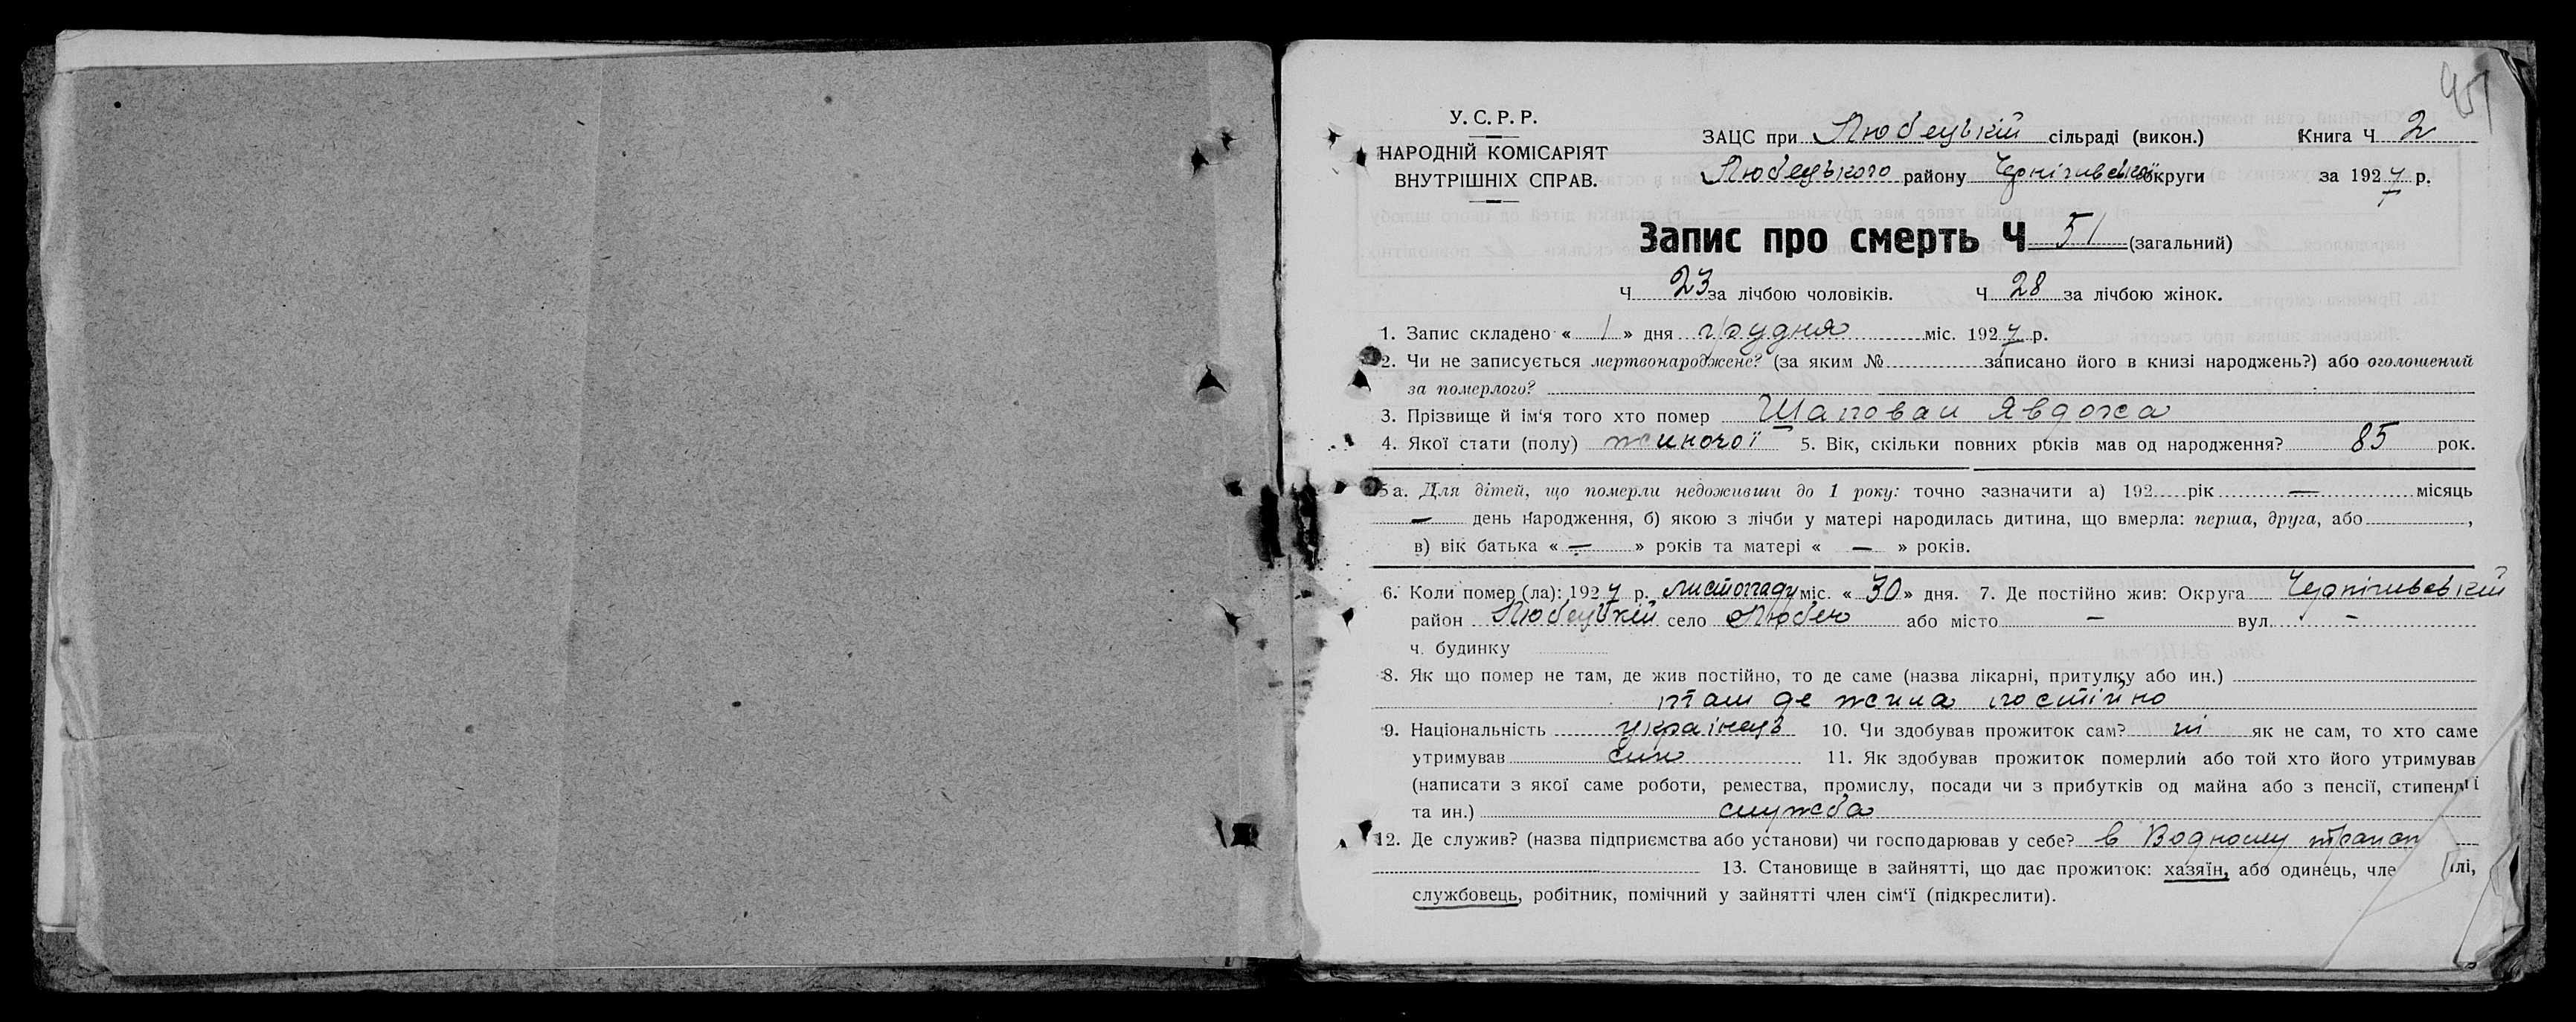 451
У. С. Р. Р.
НАРОДНІЙ КОМІСАРІЯТ
ВНУТРІШНІХ СПРАВ.
ЗАЦС при Любецькій сільраді (викон.) Книга Ч 2
Любецького району Чернігивської округи за 1927 р.
Запис про смерть Ч 51 (загальний)
Ч 23 за лічбою чоловіків. Ч 28 за лічбою жінок.
1. Запис складено « 1 » дня грудня міс. 1927 р.
2. Чи не записується мертвонароджене? (за яким № записано його в книзі народжень?) або оголошений
за померлого?
3. Прізвище й ім'я того хто помер Шаповал Явдоха
4. Якої стати (полу) жиночої 5. Вік, скільки повних років мав од народження? 85 рок.
5а. Для дітей, що померли недоживши до 1 року: точно зазначити а) 192 рік — місяць
— день народження, б) якою з лічби у матері народилась дитина, що вмерла: перша, друга, або ,
в) вік батька « — » років та матері « — » років.
6. Коли помер (ла): 1927 р. листопаду міс. « 30 » дня. 7. Де постійно жив: Округа Чернігивській
район Любецькій село Любеч або місто — вул. —
ч. будинку
8. Як що помер не там, де жив постійно, то де саме (назва лікарні, притулку або ин.)
там де жила постійно
9. Національність українець 10. Чи здобував прожиток сам? ні як не сам, то хто саме
утримував син 11. Як здобував прожиток померлий або той хто його утримував
(написати з якої саме роботи, ремества, промислу, посади чи з прибутків од майна або з пенсії, стипендії
та ин.) служба
12. Де служив? (назва підприємства або установи) чи господарював у себе? в Водному трансп
13. Становище в зайнятті, що дає прожиток: хазяїн, або одинець, чле лі,
службовець, робітник, помічний у зайнятті член сім'ї (підкреслити).